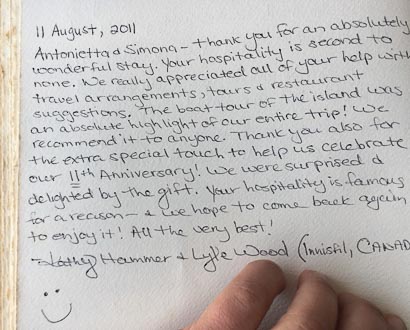 11 August, 2011
Antonietta & Simona - thank you for an absolutely
wonderful stay. Your hospitality is second to
none. We really appreciated all of your help with
travel arrangements, tours & restaurant
suggestions. The boat tour of the island was
an absolute highlight of our entire trip! We
recommend it to anyone. Thank you also for
the extra special touch to help us celebrate
our 11th Anniversary! We were surprised &
delighted by the gift. Your hospitality is famous
for a reason - & we hope to come back again
to enjoy it! All the very best!
Kathy Hammer & Lyle Wood (Innisfil, CANAD